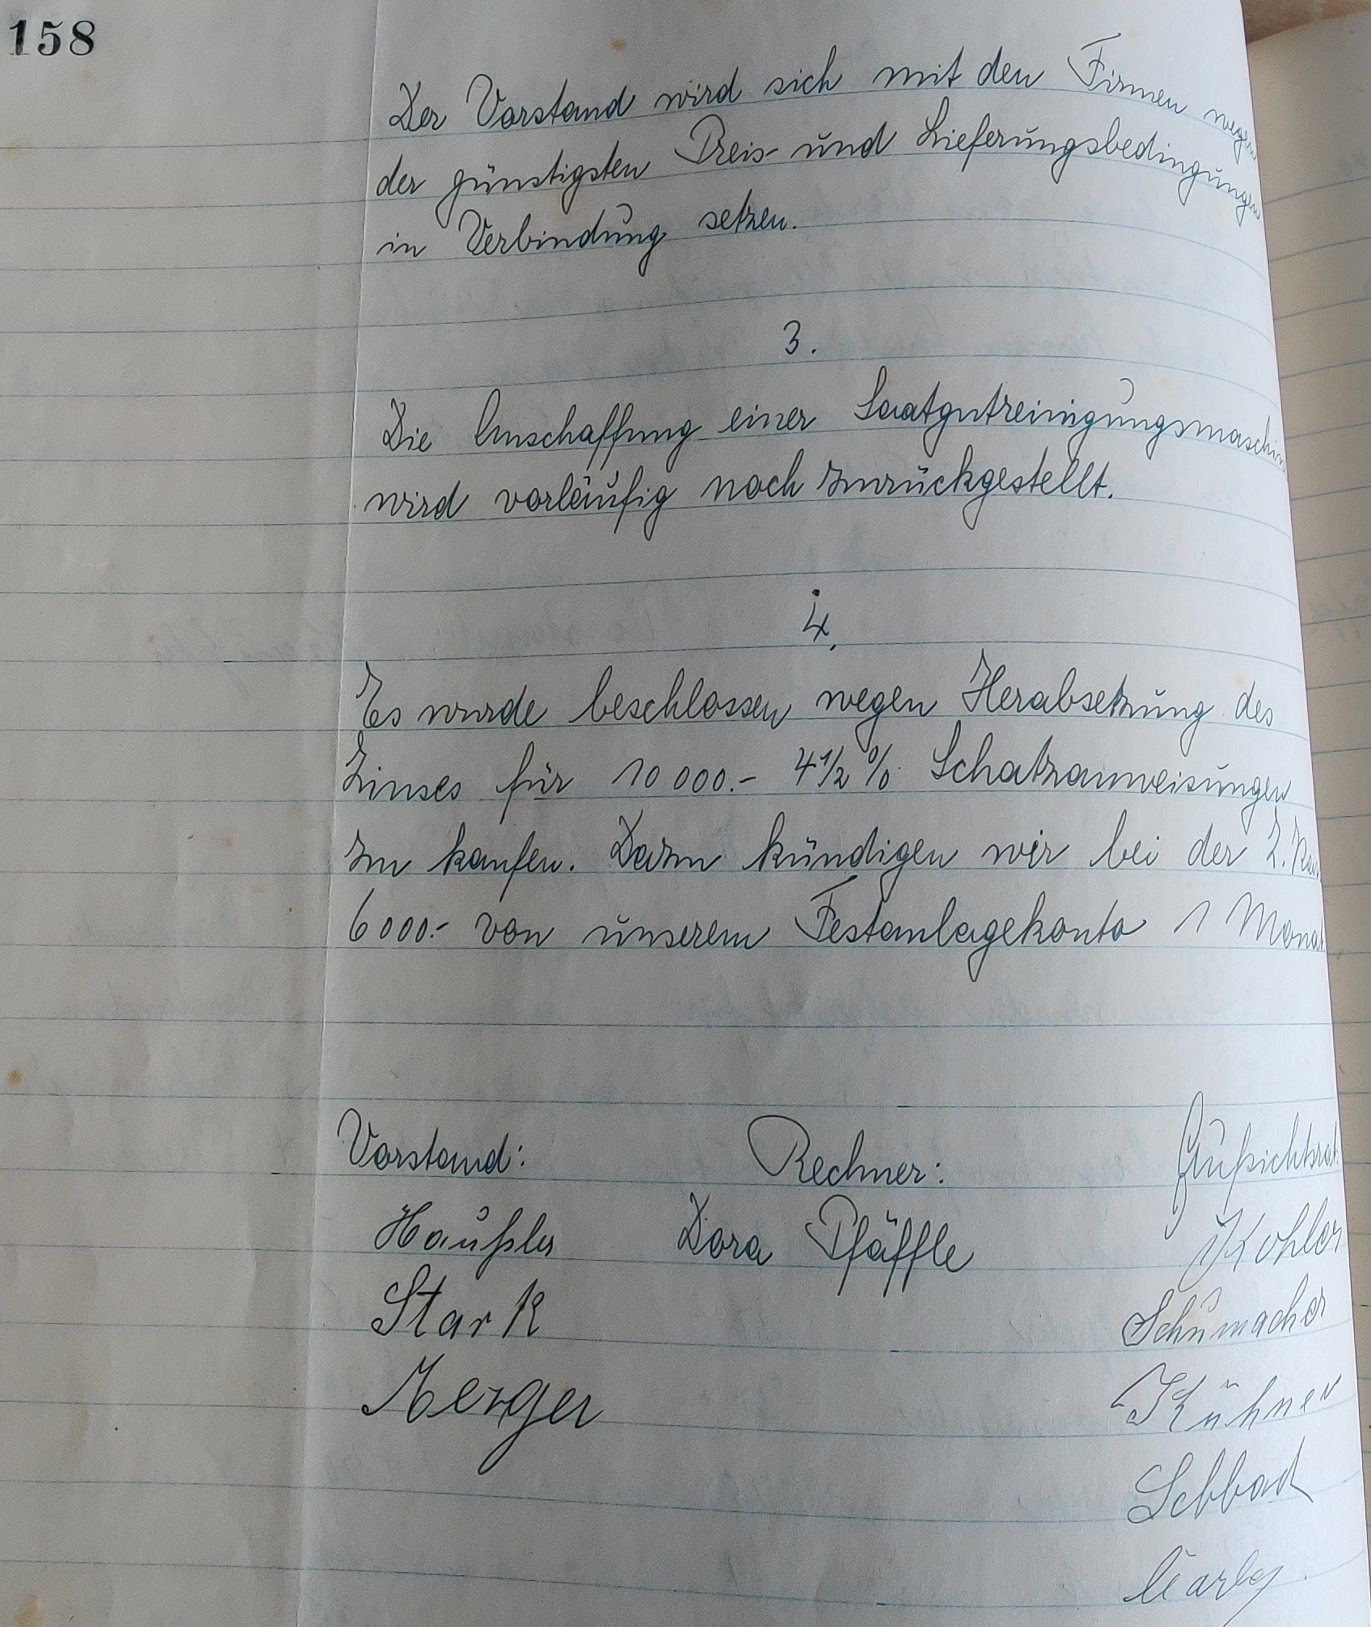 158
Der Vorstand wird sich mit den Firmen wegen
der günstigsten Preis- und Lieferungsbedingungen
in Verbindung setzen.
3.
Die Anschaffung einer Saatgutreinigungsmaschin
wird vorläufig noch zurückgestellt.
4.
Es wurde beschlossen wegen Herabsetzung des
Zinses für 10 000.- 4 1/2 % Schatzanweisungen
zu kaufen. Dazu kündigen wir bei der Z.
6000.- von unserem Festanlagekonto 1 Monat
Vorstand: Rechner: Aufsichtsrat
Häußler Dora Pfäffle Kohler
Stark Schumacher
Merger Kühner